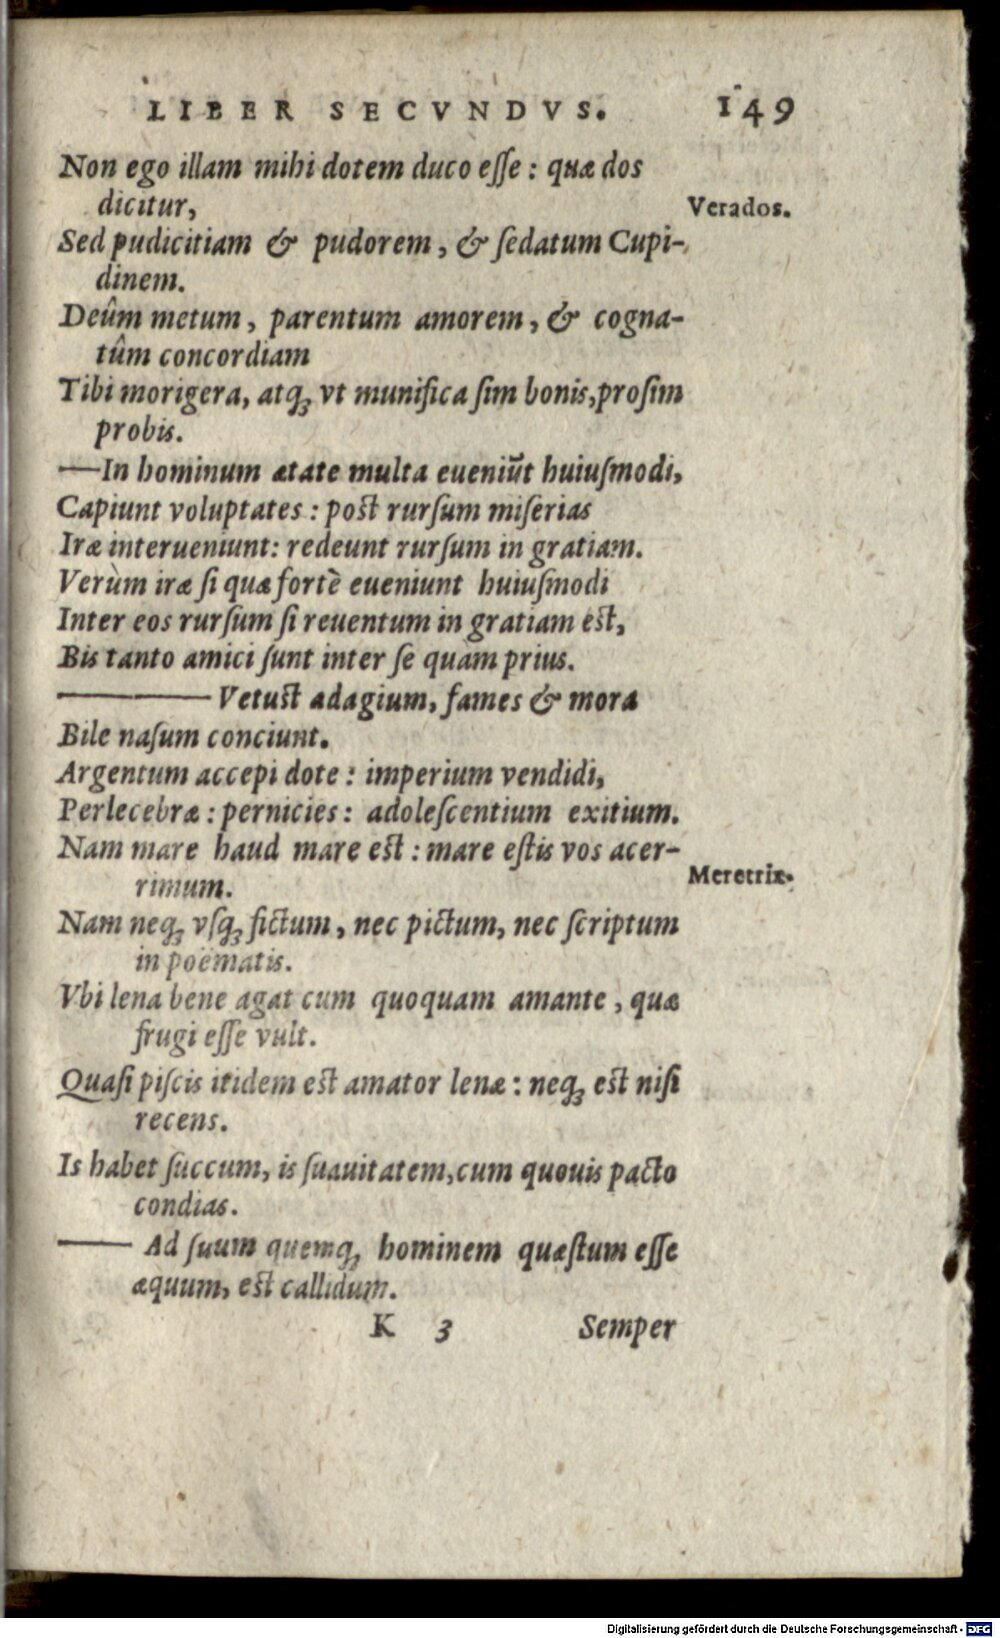 LIBER SECVNDVS. 149
Non ego illam mihi dotem duco eſſe : quæ dos
dicitur,
Verados.
Sed pudicitiam & pudorem, & ſedatum Cupi-
dinem.
Deûm metum, parentum amorem, & cogna-
tûm concordiam
Tibi morigera, atq; vt munifica ſim bonis, proſim
probis.
—In hominum ætate multa eueniūt huiuſmodi,
Capiunt voluptates : post rurſum miſerias
Iræ interueniunt: redeunt rurſum in gratiam.
Verùm iræ ſi quæ fortè eueniunt huiuſmodi
Inter eos rurſum ſi reuentum in gratiam est,
Bis tanto amici ſunt inter ſe quàm prius.
——— Vetust adagium, fames & mora
Bile naſum conciunt.
Argentum accepi dote : imperium vendidi,
Perlecebræ : pernicies : adoleſcentium exitium.
Nam mare haud mare est : mare eſtis vos acer-
rimum.
Meretrix.
Nam neq; vſq; fictum, nec pictum, nec ſcriptum
in poëmatis.
Vbi lena bene agat cum quoquam amante, quæ
frugi eſſe vult.
Quaſi piſcis itidem est amator lenæ : neq; est niſi
recens.
Is habet ſuccum, is ſuauitatem, cum quouis pacto
condias.
—— Ad ſuum quemq; hominem quæſtum eſſe
æquum, est callidum.
K 3 Semper
Digitalisierung gefördert durch die Deutsche Forschungsgemeinschaft - DFG